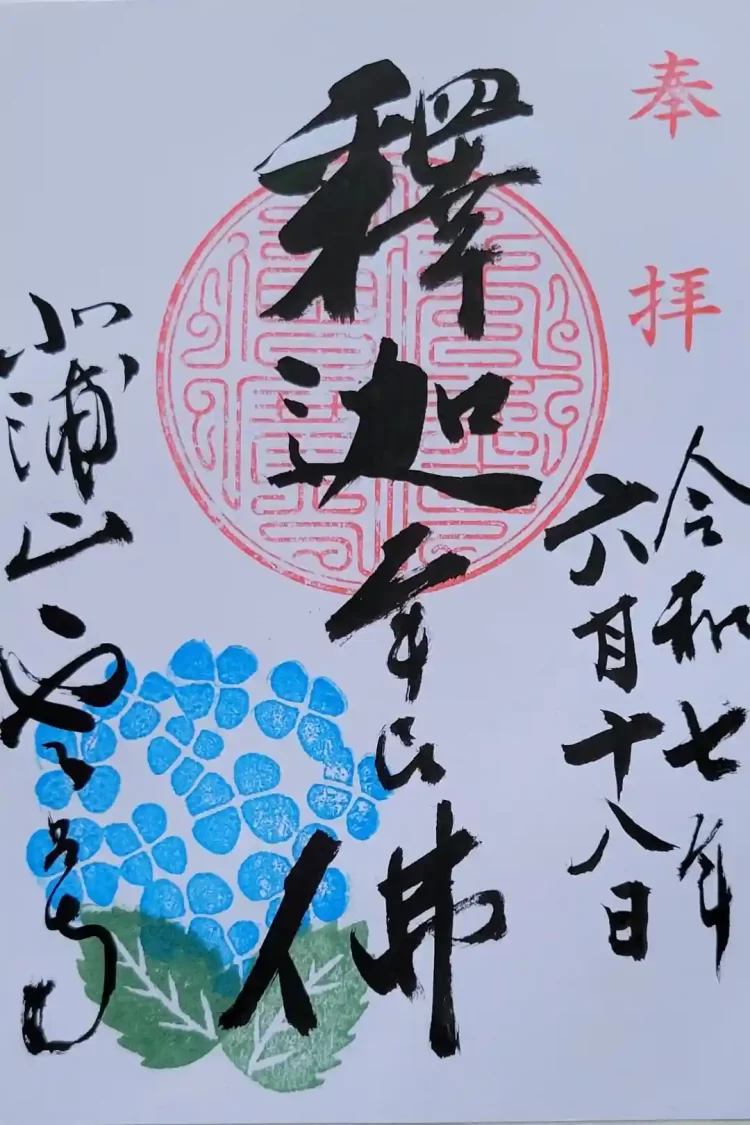 奉拝
令和七年
六月十八日
釋迦牟尼佛
北浦山雲昌寺